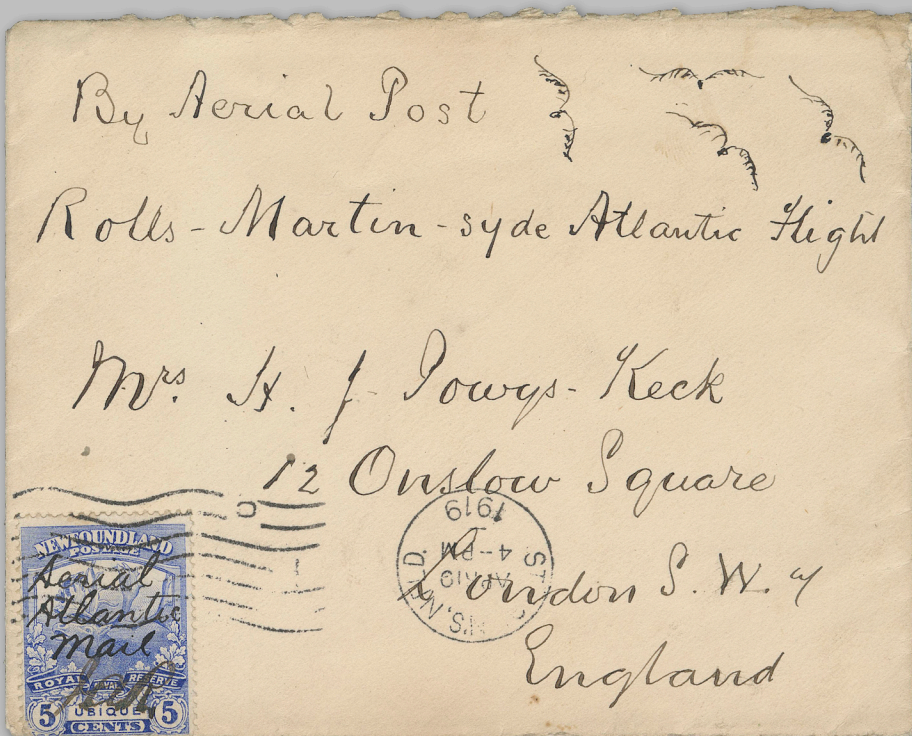 By Aerial Post
Rolls - Martin - syde Atlantic Flight
Mrs. H. J. Powys-Keck
12 Onslow Square
London S. W. 7
England
ST. 'S, NF'D.
APR 19
4-PM
1919
NEWFOUNDLAND
POSTAGE
Aerial
Atlantic
Mail
ROYAL NAVAL RESERVE
5 UBIQUE 5
CENTS